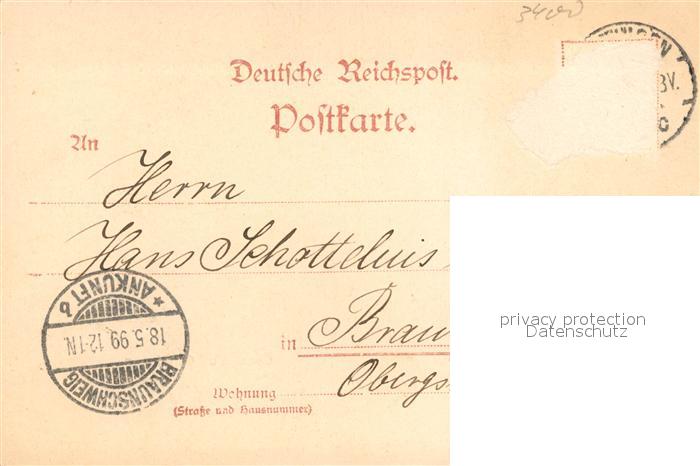 34,00
Deutsche Reichspost.
Postkarte.
BV.
An
Herrn
Hans Schottelius
in Brau
Obergs
Wohnung
(Straße und Hausnummer)
BRAUNSCHWEIG
18.5.99. 12-1N.
* ANKUNFT b
privacy protection
Datenschutz